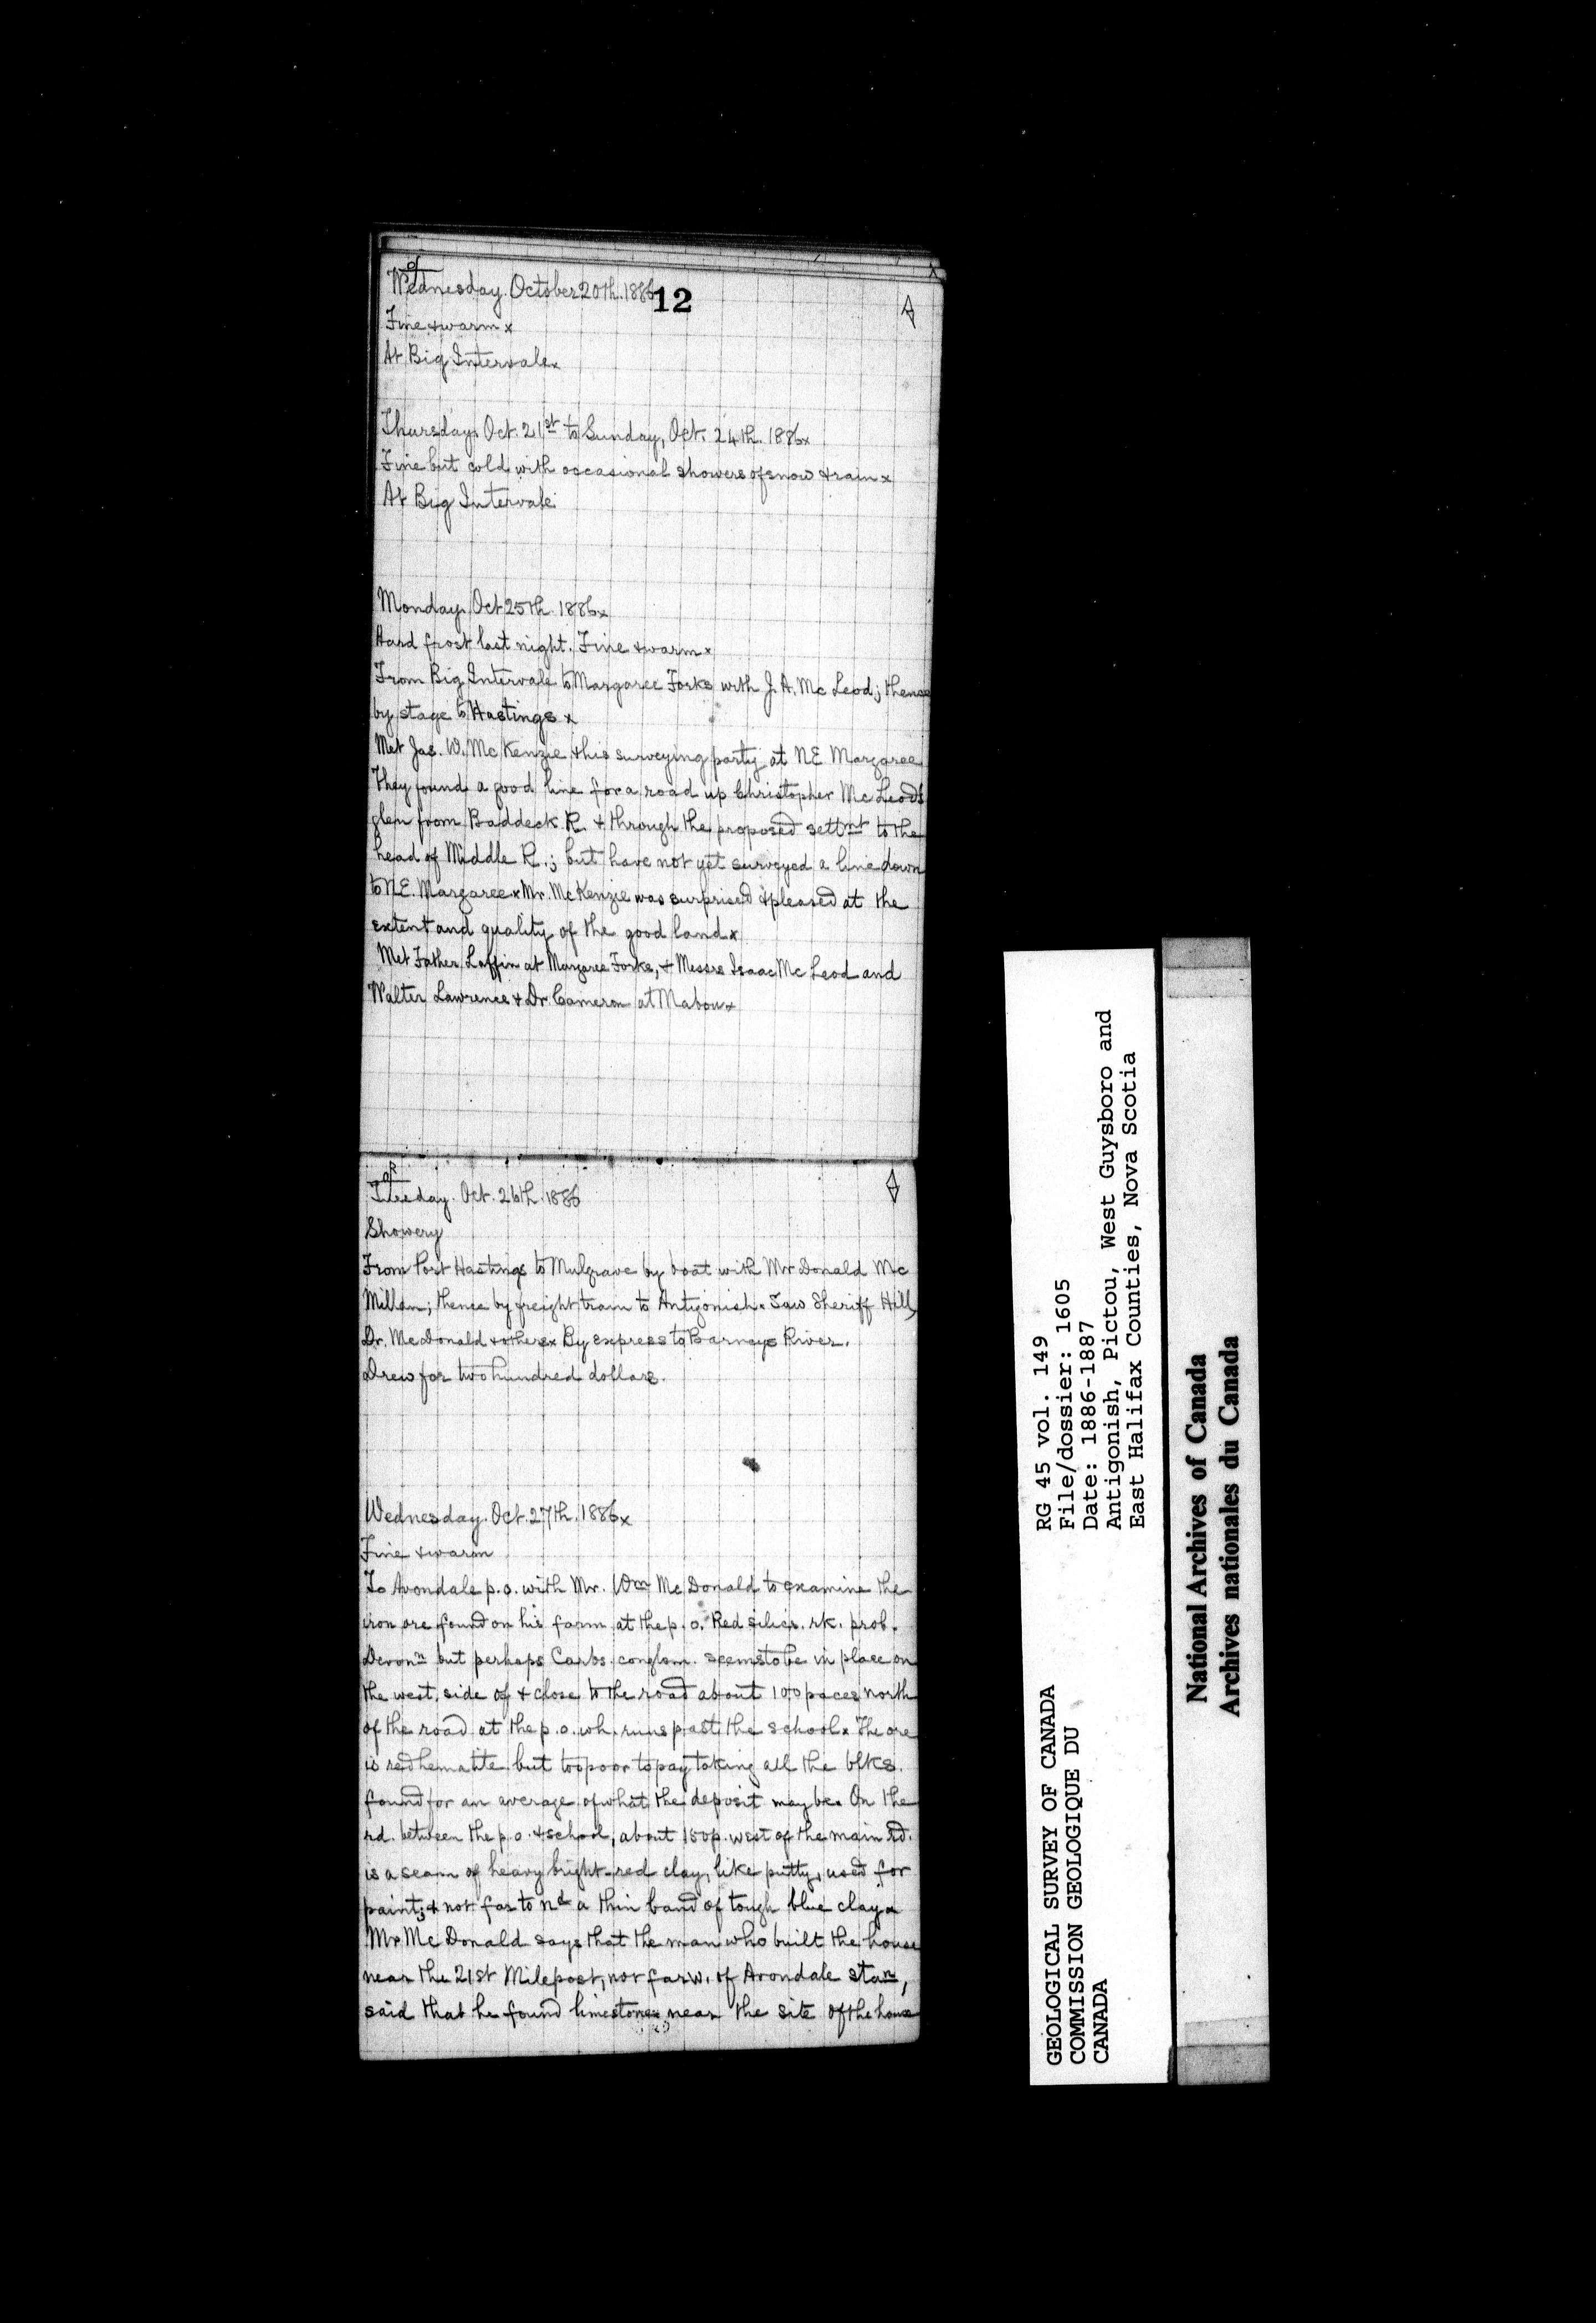 Wednesday. October 20th. 1886
12
Fine & warm x
At Big Intervale x
Thursday, Oct. 21st to Sunday, Oct. 24th. 1886x
Fine but cold with occasional showers of snow & rain x
At Big Intervale.
Monday, Oct 25th. 1886x
Hard frost last night. Fine & warm x
From Big Intervale to Margaree Forks with J. A. Mc Leod; thence
by stage to Hastings x
Met Jas. W. Mc Kenzie & his surveying party at N.E. Margaree
They found a good line for a road up Christopher Mc Leod's
glen from Baddeck R. & through the proposed settnt to the
head of Middle R.; but have not yet surveyed a line down
to N.E. Margaree x Mr. McKenzie was surprised & pleased at the
extent and quality of the good land x
Met Father Laffin at Margaree Forks, & Messrs Isaac Mc Leod and
Walter Lawrence & Dr. Cameron at Mabou x
Tuesday. Oct. 26th. 1886
Showery
From Port Hastings to Mulgrave by boat with Mr Donald Mc
Millan; thence by freight train to Antigonish x Saw Sheriff Hill,
Dr. McDonald & others x By express to Barneys River.
Drew for two hundred dollars.
Wednesday. Oct. 27th. 1886x
Fine & warm
To Avondale p.o. with Mr. Wm Mc Donald to examine the
iron ore found on his farm at the p. o. Red silics. rk. prob.
Devonn but perhaps Carbs. conglom. seems to be in place on
the west side of & close to the road about 100 paces north
of the road at the p.o. wh. runs past the school x The ore
is red hematite but too poor to pay taking all the blks.
found for an average of what the deposit may be x On the
rd. between the p.o. & school, about 150p. west of the main rd.
is a seam of heavy bright-red clay, like putty, used for
paint; & not far to nd a thin band of tough blue clay x
Mr Mc Donald says that the man who built the house
near the 21st Milepost, not far w. of Avondale stan,
said that he found limestones near the site of the house
GEOLOGICAL SURVEY OF CANADA
COMMISSION GEOLOGIQUE DU
CANADA
RG 45 vol. 149
File/dossier: 1605
Date: 1886-1887
Antigonish, Pictou, West Guysboro and
East Halifax Counties, Nova Scotia
National Archives of Canada
Archives nationales du Canada